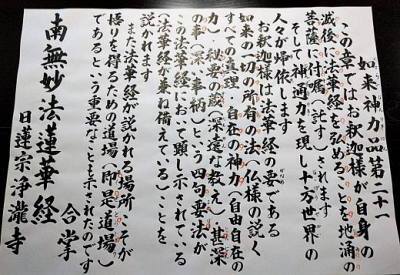 如来神力品第二十一
この章ではお釈迦様が自身の
滅後に法華経を弘めることを地涌の
菩薩に付嘱（託す）されます
そして神通力を現し十方世界の
人々が帰依します
お釈迦様は法華経の要である
如来の一切の所有の法（仏様の説く
すべての真理）自在の神力（自由自在の
力）秘要の蔵（深遠な教え）甚深
の事（深い事柄）という四句要法が
この法華経において顕し示されている
（法華経が兼ね備えている）ことを
説かれます
また法華経が説かれる場所こそが
悟りを得るための道場（即是道場）
であるという重要なことも示されたのです
合掌
南無妙法蓮華経
日蓮宗浄瀧寺